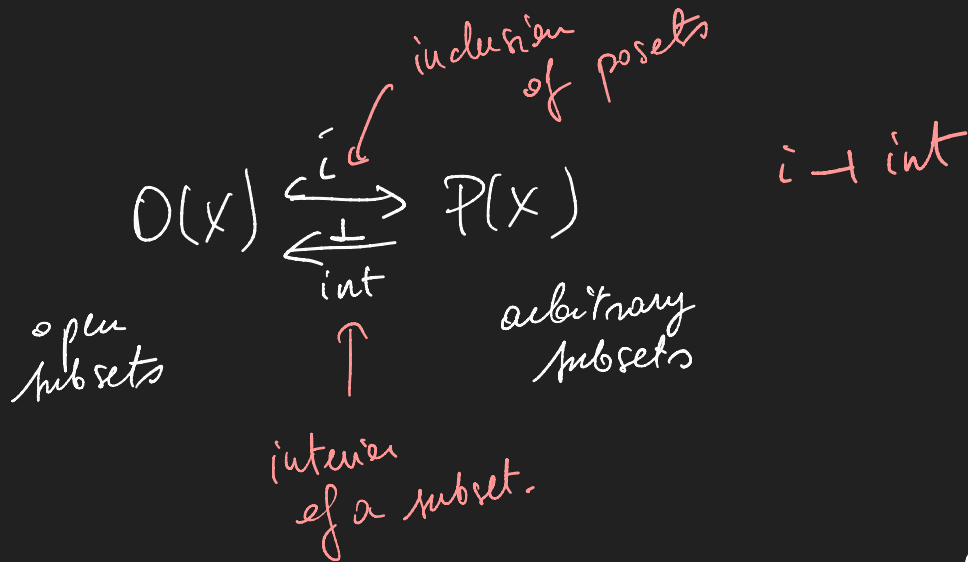 inclusion
of posets
i
i ⊣ int
O(X) P(X)
⊥
int
open
subsets
arbitrary
subsets
interior
of a subset.